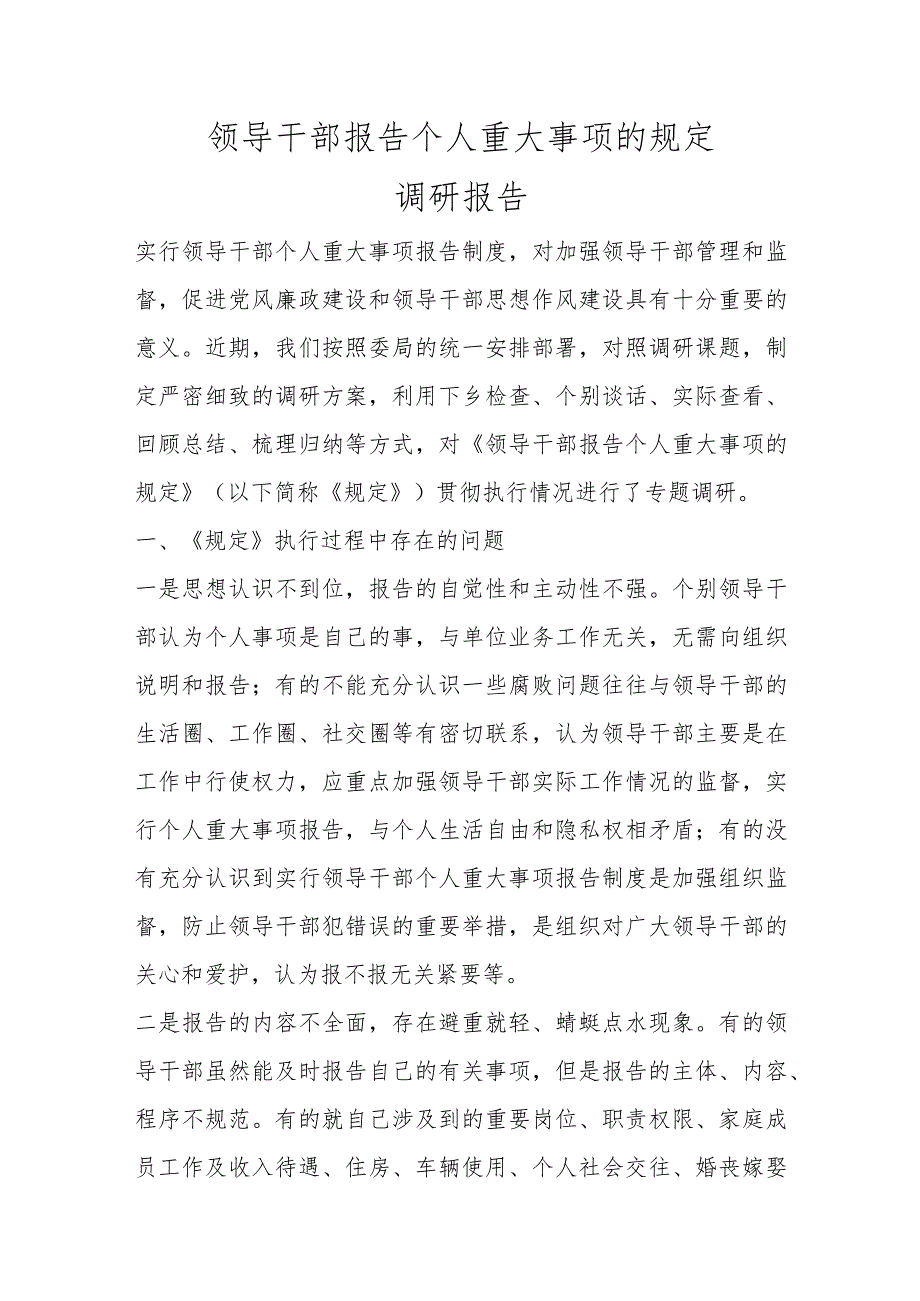 领导干部报告个人重大事项的规定
调研报告
实行领导干部个人重大事项报告制度，对加强领导干部管理和监
督，促进党风廉政建设和领导干部思想作风建设具有十分重要的
意义。近期，我们按照委局的统一安排部署，对照调研课题，制
定严密细致的调研方案，利用下乡检查、个别谈话、实际查看、
回顾总结、梳理归纳等方式，对《领导干部报告个人重大事项的
规定》（以下简称《规定》）贯彻执行情况进行了专题调研。
一、《规定》执行过程中存在的问题
一是思想认识不到位，报告的自觉性和主动性不强。个别领导干
部认为个人事项是自己的事，与单位业务工作无关，无需向组织
说明和报告；有的不能充分认识一些腐败问题往往与领导干部的
生活圈、工作圈、社交圈等有密切联系，认为领导干部主要是在
工作中行使权力，应重点加强领导干部实际工作情况的监督，实
行个人重大事项报告，与个人生活自由和隐私权相矛盾；有的没
有充分认识到实行领导干部个人重大事项报告制度是加强组织监
督，防止领导干部犯错误的重要举措，是组织对广大领导干部的
关心和爱护，认为报不报无关紧要等。
二是报告的内容不全面，存在避重就轻、蜻蜓点水现象。有的领
导干部虽然能及时报告自己的有关事项，但是报告的主体、内容、
程序不规范。有的就自己涉及到的重要岗位、职责权限、家庭成
员工作及收入待遇、住房、车辆使用、个人社会交往、婚丧嫁娶